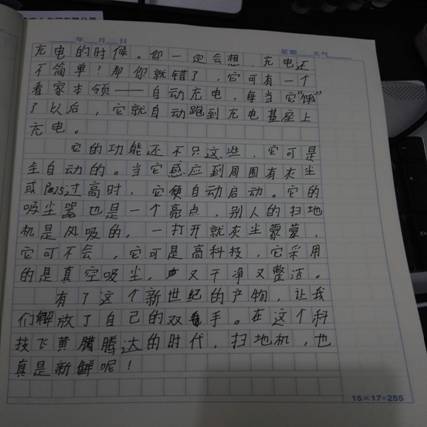 年 月 日 星期 天气
充电的时候。你一定会想，充电还
不简单？那你就错了，它可有一个
看家本领——自动充电，每当它“饿”
了以后，它就自动跑到充电基座上
充电。
它的功能还不只这些，它可是
全自动的。当它感应到周围有灰尘
或 过高时，它便自动启动。它的
吸尘器也是一个亮点，别人的扫地
机是风吸的。一打开就灰尘雾蒙，
它可不会，它可是高科技，它采用
的是真空吸尘，又干净又整洁。
有了这个新世纪的产物，让我
们解放了自己的双手。在这个科
技飞黄腾达的时代，扫地机，也
真是新鲜呢！
15×17=255